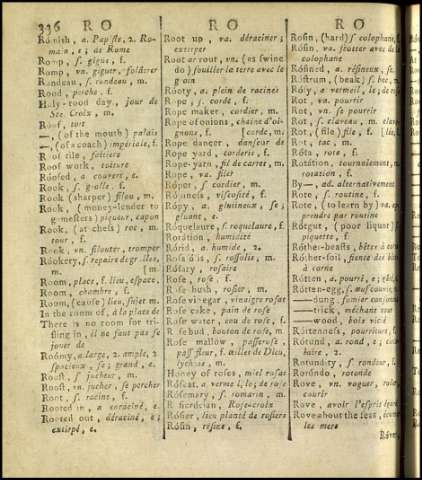 336 RO RO RO
Rómish, a. Papiste, 2. Ro-
main, e; de Rome
Romp, f. gigue, f.
Romp, vn. giguer, folâtrer
Rondeau, f. rondeau, m.
Rood, perche, f.
Holy-rood day, jour de
Ste. Croix, m.
Roof, toit
—, (of the mouth) palais
—, (of a coach) impériale, f.
R of tile, faîtiere
Roof work, toiture
Róofed, a couvert, e.
Rook, f. g olle. f.
Rook (sharper) filou, m.
Rook, (money-lender to
g-mesters) piqueur, capon
Rook, (at chess) roc, m.
tour, f.
Rook, vn. filouter, tromper
Róokery, f. repaire de gr lles,
m. [m
Room, place, f. lieu, espace,
Room, chambre, f.
Room, (cause) lieu, sujet m.
In the room of, à la place de
There is no room for tri-
fling in, il ne faut pas se
jouer de
Roómy, a. large, 2. ample, 2
spacieux, se; grand, e.
Roost, f. juchoir, m.
Roost, vn. jucher, se percher
Root, f. racine, f.
Rooted in, a enraciné, e.
Rooted out, déraciné, e;
extirpé, e.
Root up, va. déraciner;
extirper
Root or rout, vn. (as swine
do) fouiller la terre avec le
groin
Róoty, a. plein de racines
Rope, f. corde, f.
Rope maker, cordier, m.
Rope of onions, chaîne d'oi-
gnons, f. [corde, m.
Rope dancer, danseur de
Rope yard, corderie, f.
Rope-yarn, fil de carret, m.
Rope, va. filer
Róper, f. cordier, m.
Rópiness, viscosité, f.
Rópy, a. gluineux, se;
gluant, e.
Róquelaure, f. roquelaure, f.
Rorátion, humidité
Rórid, a. humide, 2.
Rosa ó is, f. rossolis, m.
Rósary, rosaire
Rose, rose, f.
Rose-bush, rosier, m.
Rose vinegar, vinaigre rosat
Rose cake, pain de rose
Rose water, eau de rose, f.
R sebud, bouton de rose, m.
Rose mallow, passerose,
passe fleur, f. œillet de Dieu,
lychnis, m.
Honey of roses, miel rosat
Róseat, a. vermeil, le; de rose
Rósemary, f. romarin, m.
R sicrúcian, Rose-croix
Rósier, lieu planté de rosiers
Rósin, résine, f.
Rósin, (hard) f. colophane, f.
Rósin, va. frotter avec de la
colophane
Rósined, a. résineux, se.
Róstrum, (beak) f. bec, m.
Rósy, a vermeil, le; de rose
Rot, va. pourrir
Rot, vn. se pourrir
Rot, f. claveau, m. clave-
Rot, (file) file, f. [lée, f.
Rot, tac, m.
Róta, rote, f.
Rotátion, tournoiement, m.
rotation, f.
By—, ad. alternativement
Rote, f. routine, f.
Rote, (to learn by) va. ap-
prendre par routine
Rótgut, (poor liquor)
piquette, f.
Róther-beasts, bêtes à corne
Róther-soil, fiente des bêtes
à corne
Rótten, a. pourri, e; gâté, e
Rótten-egg, f. œuf couvi, m.
—dung, fumier consommé
—trick, méchant tour
—wood, bois vicié
Róttenness, pourriture, f.
Rótund, a. rond, e; circu-
laire, 2.
Rotúndity, f. rondeur, f.
Rotúndo, rotonde
Rove, vn. voguer, roder,
courir
Rove, avoir l'esprit égaré
Rove about the seas, écumer
les mers
Róver,